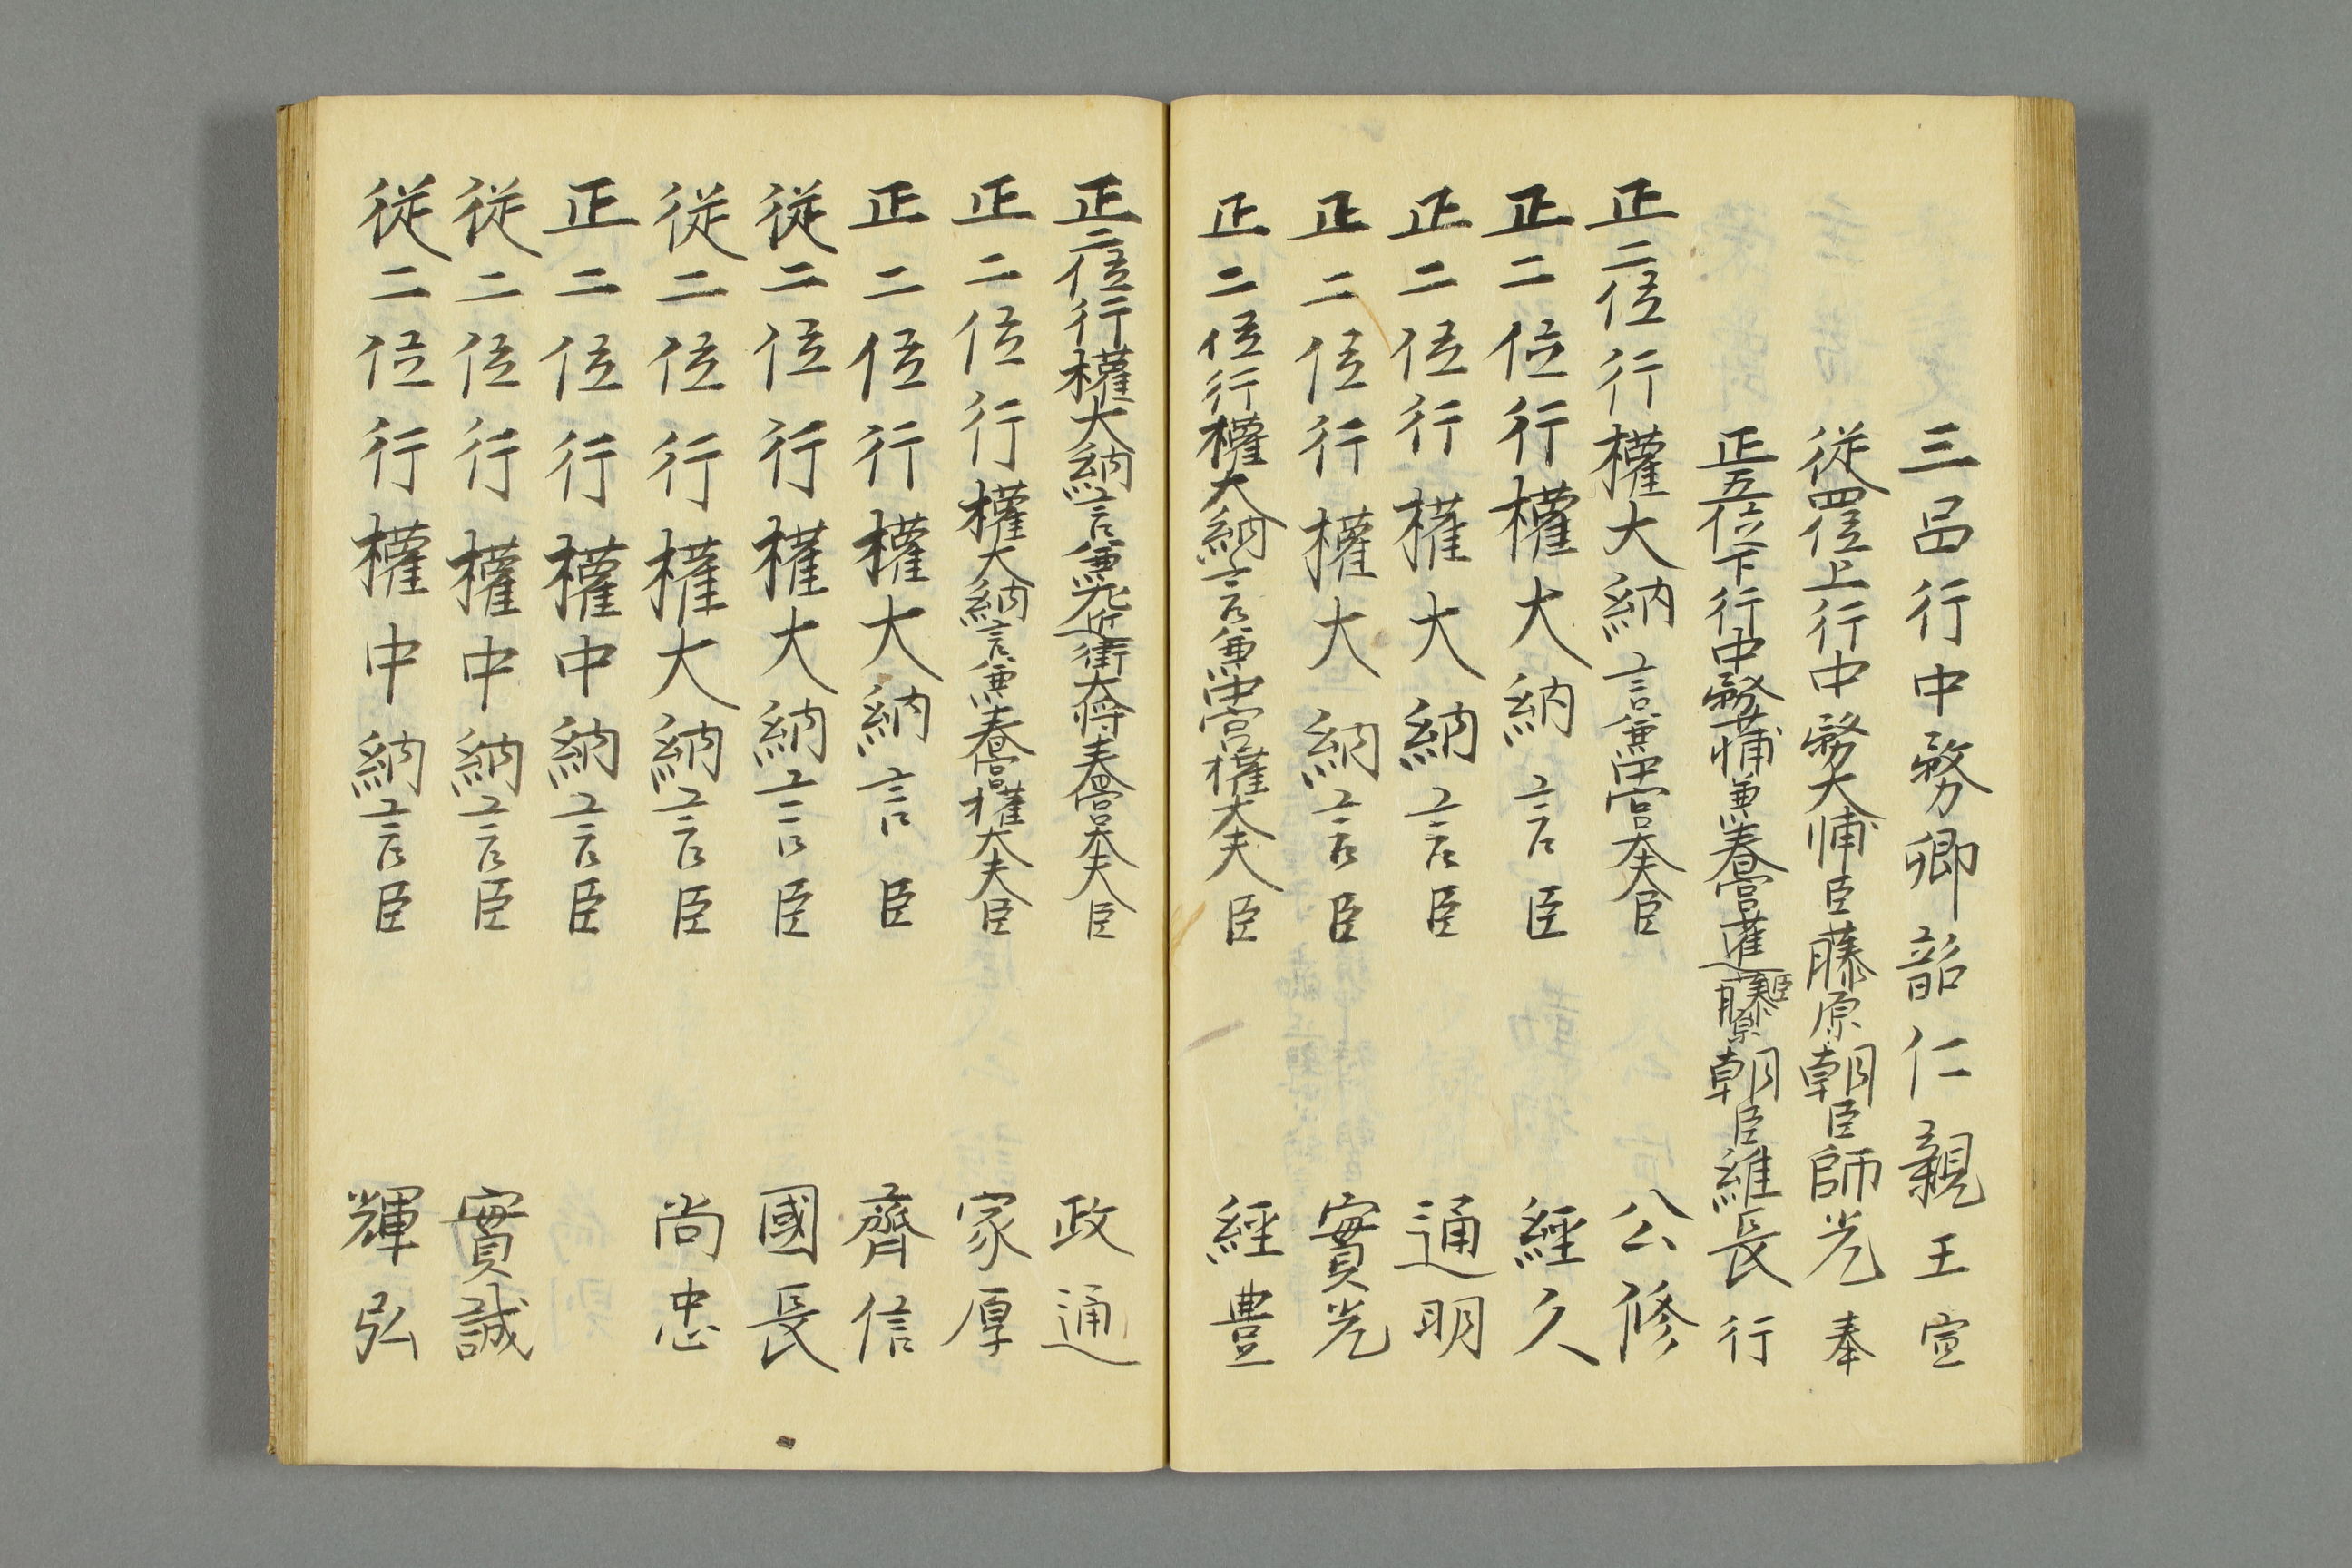 三品行中務卿韶仁親王宣
従四位上行中務大輔臣藤原朝臣師光奉
正五位下行中務権少輔兼春宮権大進臣藤原朝臣維長行
正二位行權大納言兼中宮大夫臣 公修
正二位行權大納言臣 經久
正二位行權大納言臣 通明
正二位行權大納言臣 實光
正二位行權大納言兼中宮權大夫臣 經豊
正二位行權大納言兼左近衛大将春宮大夫臣 政通
正二位行權大納言兼春宮權大夫臣 家厚
正二位行權大納言臣 齊信
従二位行權大納言臣 國長
従二位行權大納言臣 尚忠
正二位行權中納言臣
従二位行權中納言臣 實誠
従二位行權中納言臣 輝弘